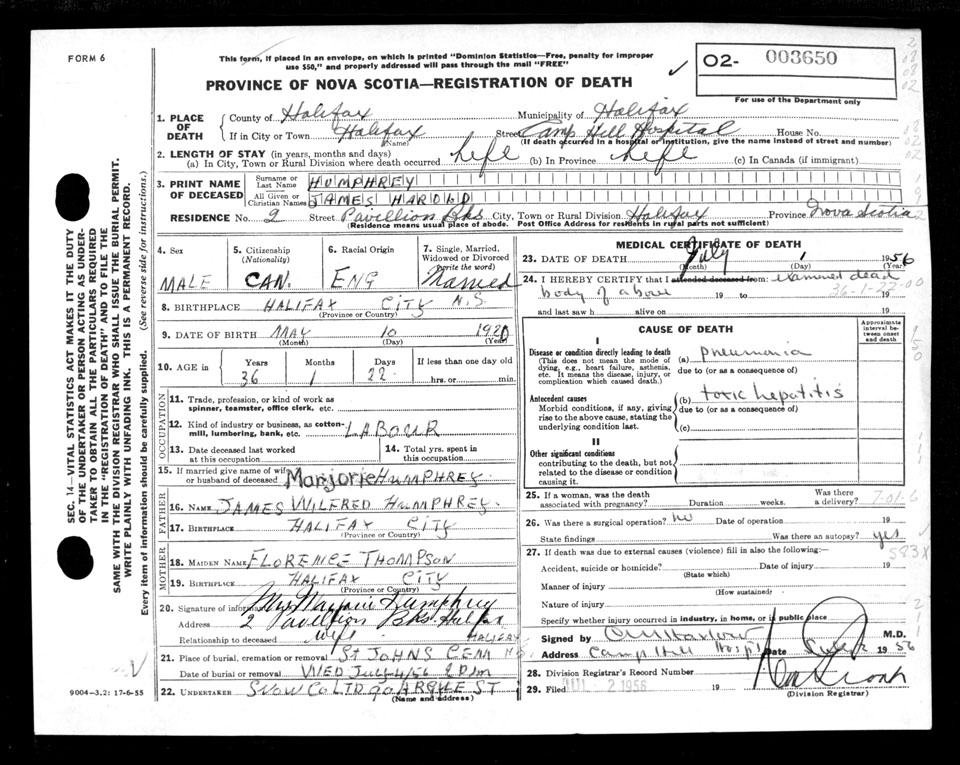 FORM 6
This form, if placed in an envelope, on which is printed "Dominion Statistics—Free, penalty for improper
use $50," and properly addressed will pass through the mail "FREE"
PROVINCE OF NOVA SCOTIA—REGISTRATION OF DEATH
02- 003650
For use of the Department only
1. PLACE OF DEATH
County of Halifax Municipality of Halifax
If in City or Town Halifax Street Camp Hill Hospital House No.
(Name) (If death occurred in a hospital or institution, give the name instead of street and number)
2. LENGTH OF STAY (in years, months and days)
(a) In City, Town or Rural Division where death occurred life (b) In Province life (c) In Canada (if immigrant)
3. PRINT NAME OF DECEASED
Surname or Last Name HUMPHREY
All Given or Christian Names JAMES HAROLD
RESIDENCE No. 2 Street Pavillion Bks City, Town or Rural Division Halifax Province Nova Scotia
(Residence means usual place of abode. Post Office Address for residents in rural parts not sufficient)
4. Sex MALE
5. Citizenship (Nationality) CAN.
6. Racial Origin ENG
7. Single, Married, Widowed or Divorced (write the word) Married
8. BIRTHPLACE HALIFAX CITY N.S.
(Province or Country)
9. DATE OF BIRTH MAY 10 1920
(Month) (Day) (Year)
10. AGE in Years Months Days If less than one day old
36 1 22 hrs. or min.
OCCUPATION
11. Trade, profession, or kind of work as
spinner, teamster, office clerk, etc.
12. Kind of industry or business, as cotton-
mill, lumbering, bank, etc. LABOUR
13. Date deceased last worked
at this occupation
14. Total yrs. spent in
this occupation
15. If married give name of wife
or husband of deceased Marjorie HUMPHREY
FATHER
16. NAME JAMES WILFRED HUMPHREY
17. BIRTHPLACE HALIFAX CITY
(Province or Country)
MOTHER
18. MAIDEN NAME FLORENCE THOMPSON
19. BIRTHPLACE HALIFAX CITY
(Province or Country)
20. Signature of informant Mrs Marjorie Humphrey
Address 2 Pavillion Bks Halifax
Relationship to deceased wife
21. Place of burial, cremation or removal ST JOHNS CEM HALIFAX N.S.
Date of burial or removal WED JULY 4/56 2 PM
22. UNDERTAKER SNOW CO LTD 90 ARGYLE ST
(Name and address)
9004-3,2: 17-6-55
MEDICAL CERTIFICATE OF DEATH
23. DATE OF DEATH July 1 1956
(Month) (Day) (Year)
24. I HEREBY CERTIFY that I attended deceased from: examined dead
body of above 19 to 19
36-1-22-00
and last saw h alive on 19
CAUSE OF DEATH
Approximate interval between onset and death
I
Disease or condition directly leading to death
(This does not mean the mode of
dying, e.g., heart failure, asthenia,
etc. It means the disease, injury, or
complication which caused death.)
(a) Pneumonia
due to (or as a consequence of)
Antecedent causes
Morbid conditions, if any, giving
rise to the above cause, stating the
underlying condition last.
(b) toxic hepatitis
due to (or as a consequence of)
(c)
II
Other significant conditions
contributing to the death, but not
related to the disease or condition
causing it.
25. If a woman, was the death
associated with pregnancy? Duration weeks. Was there
a delivery? 7-01-6
26. Was there a surgical operation? no Date of operation 19
State findings Was there an autopsy? yes
583X
27. If death was due to external causes (violence) fill in also the following:—
Accident, suicide or homicide? Date of injury 19
(State which)
Manner of injury
(How sustained)
Nature of injury
Specify whether injury occurred in industry, in home, or in public place
Signed by M.D.
Address Camp Hill Hospital Date 1956
28. Division Registrar's Record Number
29. Filed JUL 2 1956 19
(Division Registrar)
SEC. 14—VITAL STATISTICS ACT MAKES IT THE DUTY
OF THE UNDERTAKER OR PERSON ACTING AS UNDER-
TAKER TO OBTAIN ALL THE PARTICULARS REQUIRED
IN THE "REGISTRATION OF DEATH" AND TO FILE THE
SAME WITH THE DIVISION REGISTRAR WHO SHALL ISSUE THE BURIAL PERMIT.
WRITE PLAINLY WITH UNFADING INK. THIS IS A PERMANENT RECORD.
Every item of information should be carefully supplied. (See reverse side for instructions.)